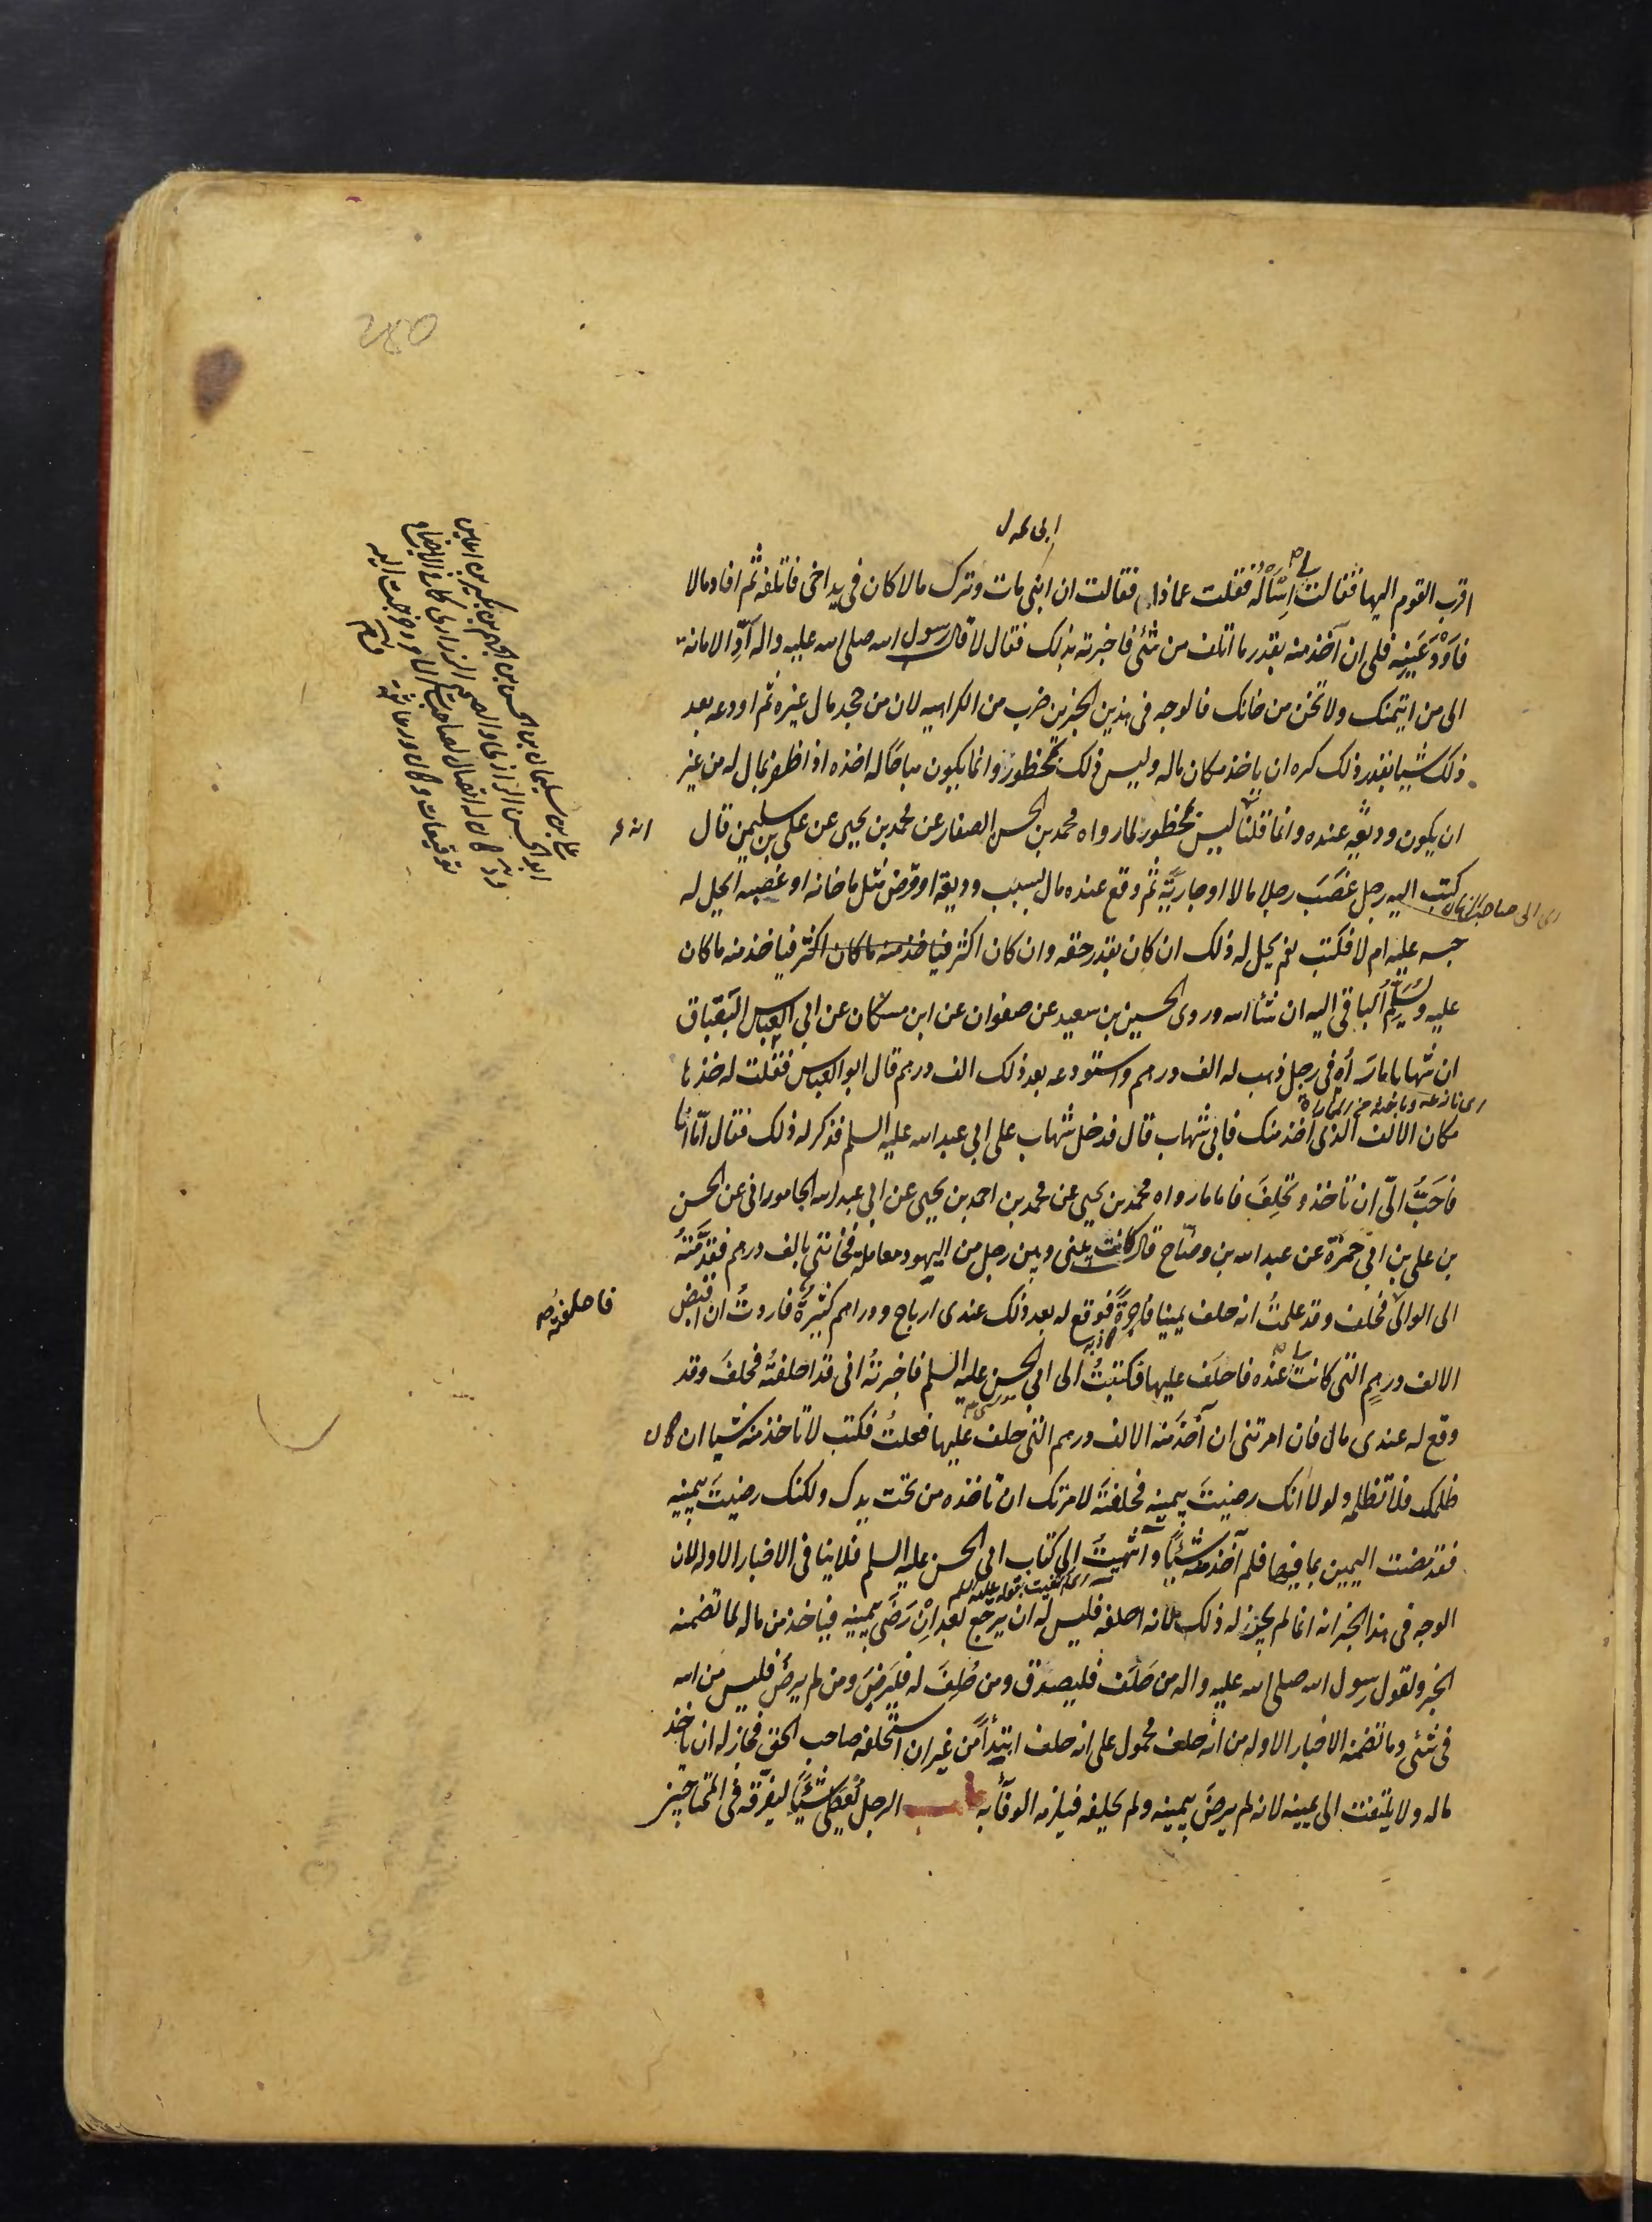 اقرب القوم اليها فقالت لي اسأله فقلت عماذا فقالت ان ابني مات وترك مالا كان في يد اخي فاتلفه ثم افاد مالا
فاودعنيه فلي ان آخذ منه بقدر ما اتلف من شئ فاخبرته بذلك فقال لا قال رسول الله صلى الله عليه واله ادّ الامانة
الى من ايتمنك ولا تخن من خانك فالوجه في هذين الخبرين ضرب من الكراهيه لان من جحد مال غيره ثم اودعه بعد
ذلك شيا بقدر ذلك كره ان ياخذ مكان ماله وليس ذلك بمحظور وانما يكون مباحا له اخذه اذا ظفر بمال له من غير
ان يكون وديعه عنده وانما قلنا ليس بمحظور لما رواه محمد بن الحسن الصفار عن محمد بن يحيى عن علي بن سليمن قال
كتب اليه رجل غصب رجلا مالا او جارية ثم وقع عنده مال بسبب وديعة او قرض مثل ما خانه او غصبه ايحل له
حبسه عليه ام لا فكتب نعم يحل له ذلك ان كان بقدر حقه وان كان اكثر فياخذ منه ما كان اكثر فياخذ منه ما كان
عليه ويسلم الباقي اليه ان شاء الله وروى الحسين بن سعيد عن صفوان عن ابن مسكان عن ابي العباس البقباق
ان شهابا ماراه في رجل ذهب له الف درهم واستودعه بعد ذلك الف درهم قال ابو العباس فقلت له خذها
مكان الالف الذي اخذ منك فابى شهاب قال فدخل شهاب على ابي عبد الله عليه السلم فذكر له ذلك فقال اما انا
فاحب الي ان تاخذ وتحلف فاما ما رواه محمد بن يحيى عن محمد بن احمد بن يحيى عن ابي عبد الله الجاموراني عن الحسن
بن علي بن ابي حمزة عن عبد الله بن وضاح قال كانت بيني وبين رجل من اليهود معاملة فخانني بالف درهم فقدمته
الى الوالي فحلف وقد علمت انه حلف يمينا فاجرة فوقع له بعد ذلك عندي ارباح ودراهم كثيرة فاردت ان اقبض
فاحلفته
الالف درهم التي كانت لي عنده فاحلف عليها فكتبت الى ابي الحسن عليه السلم فاخبرته اني قد احلفته فحلف وقد
وقع له عندي مال فان امرتني ان آخذ منه الالف درهم التي حلف عليها فعلت فكتب لا تاخذ منه شيا ان كان
ظلمك فلا تظلمه ولولا انك رضيت بيمينه فحلفته لامرتك ان تاخذه من تحت يدك ولكنك رضيت بيمينه
فقد مضت اليمين بما فيها فلم آخذ منه شيئا وانتهيت الى كتاب ابي الحسن عليه السلم فلا ينافي الاخبار الاوله لان
الوجه في هذا الخبر انه انما لم يجز له ذلك لانه احلفه فليس له ان يرجع بعد ان رضي بيمينه فياخذ من ماله لما تضمنه
الخبر ولقول رسول الله صلى الله عليه واله من حلف فليصدق ومن حلف له فليرض ومن لم يرض فليس من الله
في شئ وما تضمنه الاخبار الاوله من انه حلف محمول على انه حلف ابتداء من غير ان استحلفه صاحب الحق فجاز له ان ياخذ
ماله ولا يلتفت الى يمينه لانه لم يرض بيمينه ولم يحلفه فيلزمه الوفاء به باب الرجل يعطى شيئا ليفرقه في المحتاجين
اي الى صاحب الزمان
علي بن سليمان بن الحسن بن الجهم بن بكير بن اعين
ابو الحسن الزراري